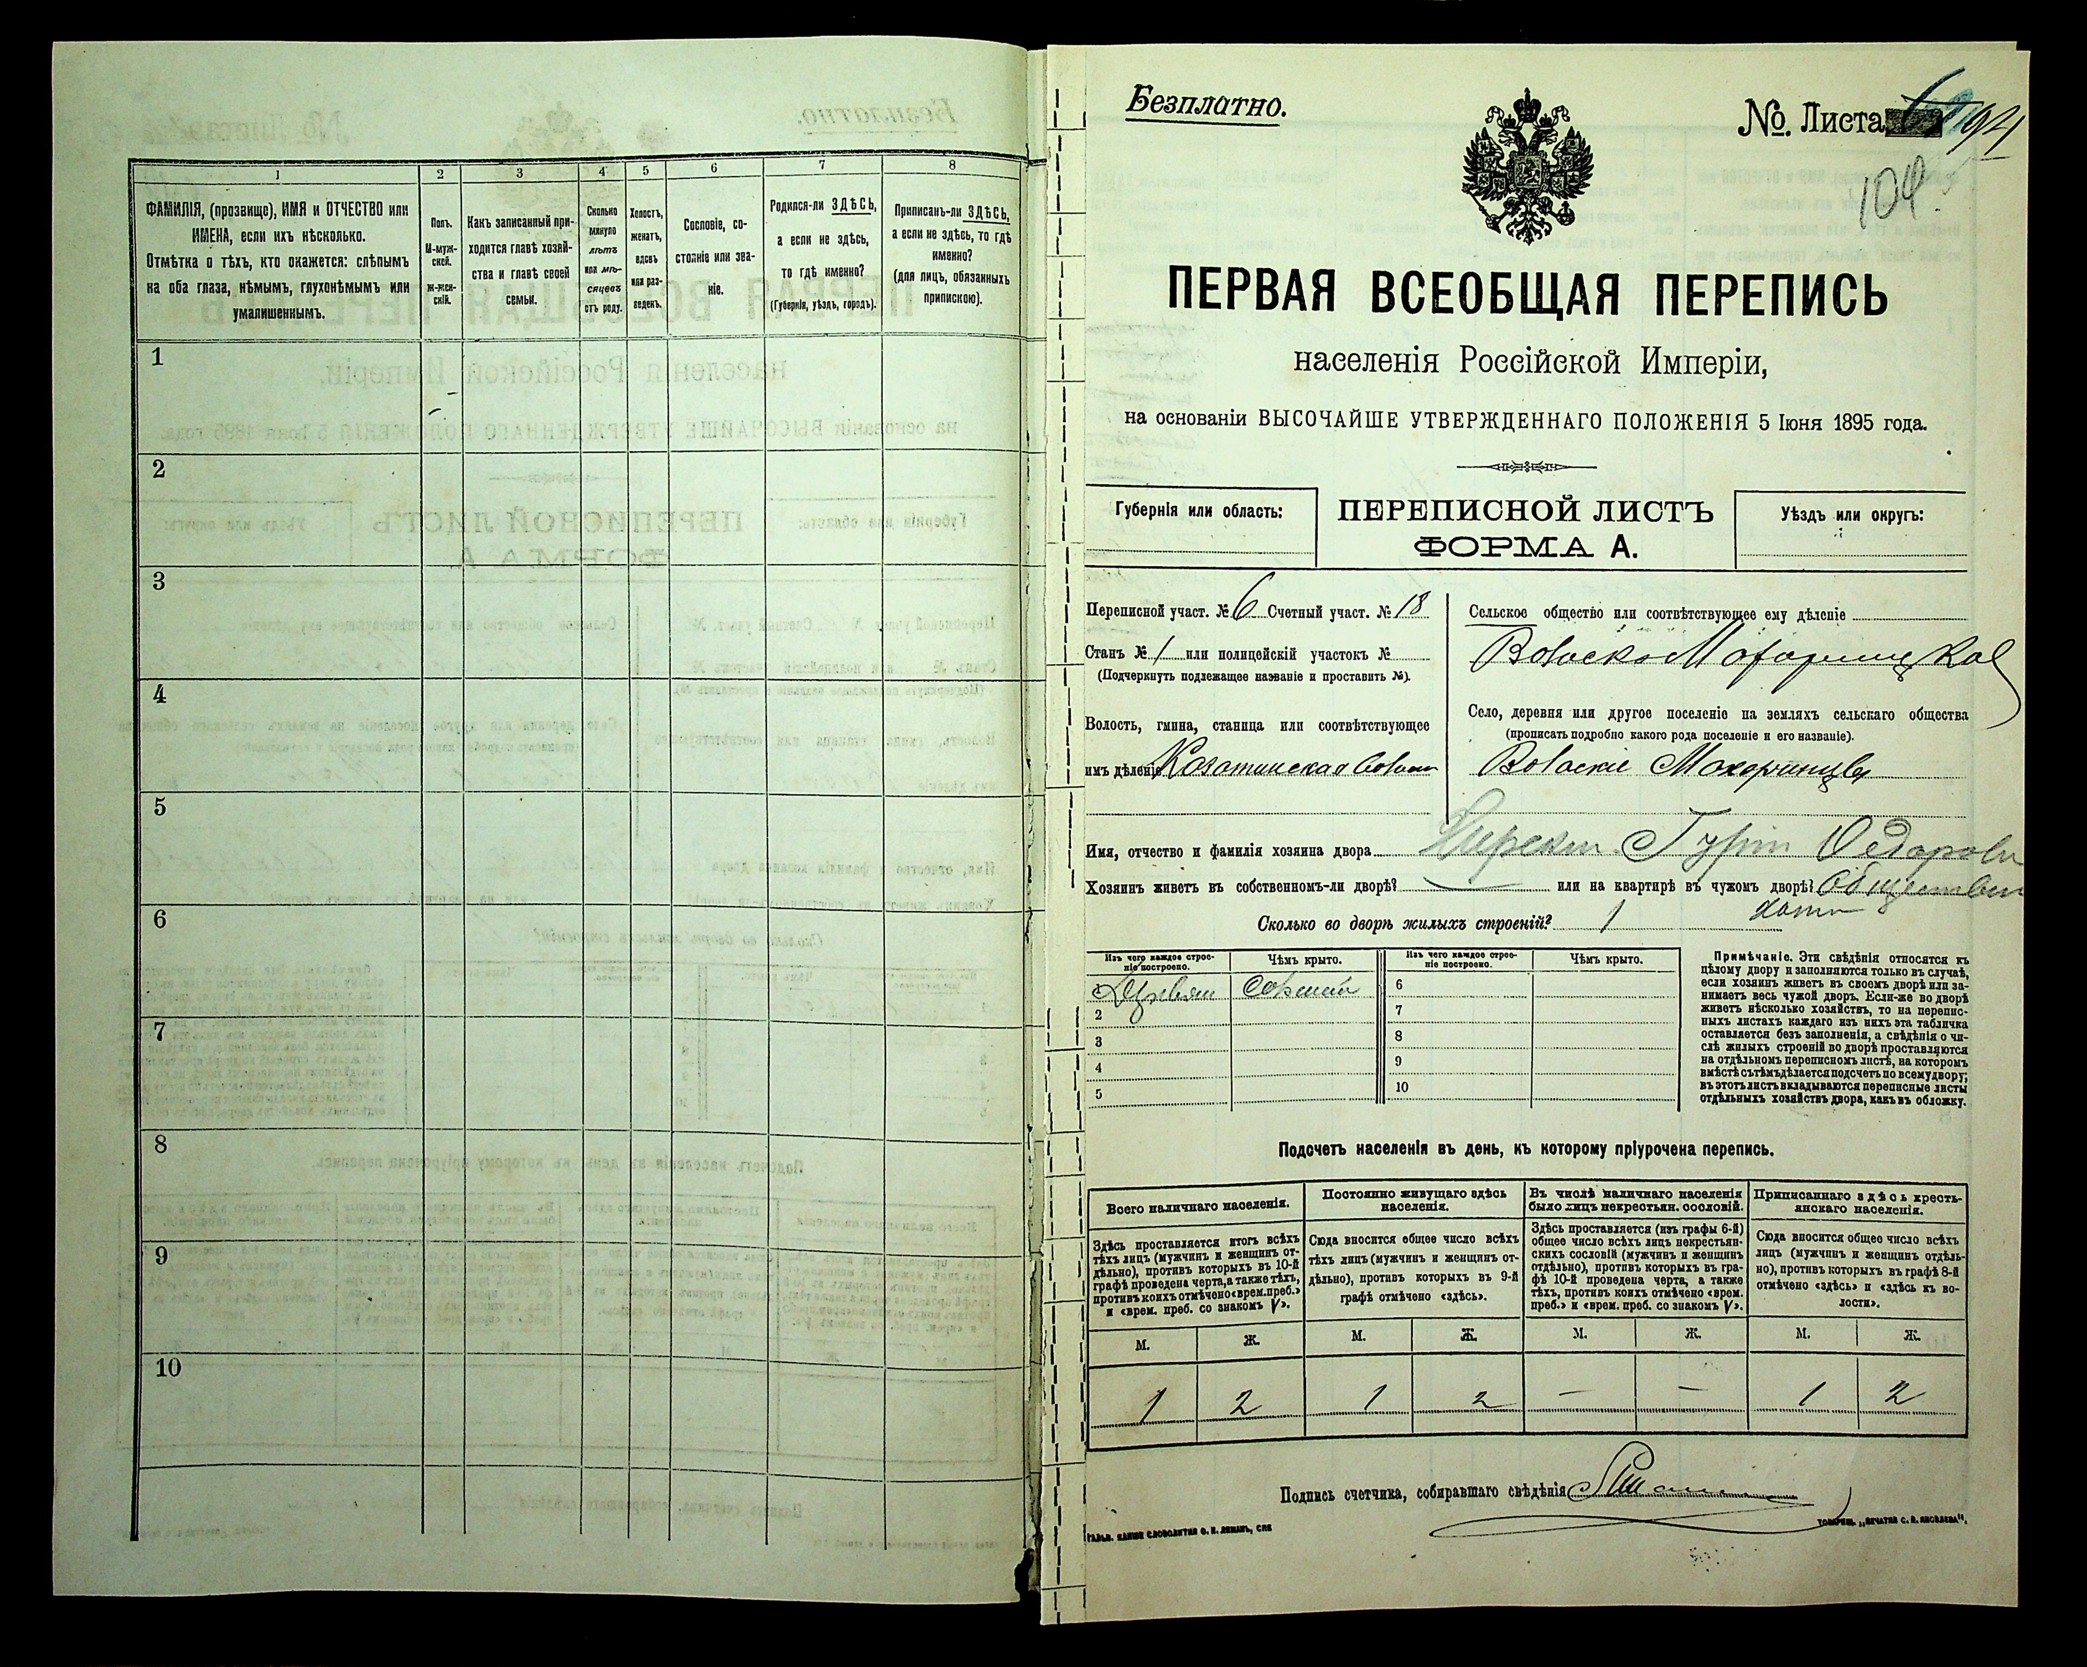 1 2 3 4 5 6 7 8
ФАМИЛІЯ, (прозвище), ИМЯ и ОТЧЕСТВО или
ИМЕНА, если ихъ нѣсколько.
Отмѣтка о тѣхъ, кто окажется: слѣпымъ
на оба глаза, нѣмымъ, глухонѣмымъ или
умалишеннымъ.
Полъ.
М-муж-
ской.
Ж-жен-
скій.
Какъ записанный при-
ходится главѣ хозяй-
ства и главѣ своей
семьи.
Сколько
минуло
лѣтъ
или мѣ-
сяцевъ
отъ роду.
Холостъ,
женатъ,
вдовъ
или раз-
веденъ.
Сословіе, со-
стояніе или зва-
ніе.
Родился-ли ЗДѢСЬ,
а если не здѣсь,
то гдѣ именно?
(Губернія, уѣздъ, городъ).
Приписанъ-ли ЗДѢСЬ,
а если не здѣсь, то гдѣ
именно?
(для лицъ, обязанныхъ
припискою).
1
2
3
4
5
6
7
8
9
10
Безплатно.
№ Листа
104
ПЕРВАЯ ВСЕОБЩАЯ ПЕРЕПИСЬ
населенія Россійской Имперіи,
на основаніи ВЫСОЧАЙШЕ УТВЕРЖДЕННАГО ПОЛОЖЕНІЯ 5 Іюня 1895 года.
Губернія или область:
ПЕРЕПИСНОЙ ЛИСТЪ
ФОРМА А.
Уѣздъ или округъ:
Переписной участ. № 6 Счетный участ. № 18
Станъ № 1 или полицейскій участокъ №
(Подчеркнуть подлежащее названіе и проставить №).
Волость, гмина, станица или соотвѣтствующее
имъ дѣленіе Козатинская
Сельское общество или соотвѣтствующее ему дѣленіе
Село, деревня или другое поселеніе на земляхъ сельскаго общества
(прописать подробно какого рода поселеніе и его названіе).
Махаринцы
Имя, отчество и фамилія хозяина двора
Хозяинъ живетъ въ собственномъ-ли дворѣ? или на квартирѣ въ чужомъ дворѣ?
Сколько во дворѣ жилыхъ строеній? 1
Изъ чего каждое строе-
ніе построено.
Чѣмъ крыто.
Изъ чего каждое строе-
ніе построено.
Чѣмъ крыто.
1 6
2 7
3 8
4 9
5 10
Примѣчаніе. Эти свѣдѣнія относятся къ
цѣлому двору и заполняются только въ случаѣ,
если хозяинъ живетъ въ своемъ дворѣ или за-
нимаетъ весь чужой дворъ. Если-же во дворѣ
живетъ нѣсколько хозяйствъ, то на перепис-
ныхъ листахъ каждаго изъ нихъ эта табличка
оставляется безъ заполненія, а свѣдѣнія о чи-
слѣ жилыхъ строеній во дворѣ проставляются
на отдѣльномъ переписномъ листѣ, на которомъ
вмѣстѣ съ тѣмъ дѣлается подсчетъ по всему двору;
въ этотъ листъ вкладываются переписные листы
отдѣльныхъ хозяйствъ двора, какъ въ обложку.
Подсчетъ населенія въ день, къ которому пріурочена перепись.
Всего наличнаго населенія.
Постоянно живущаго здѣсь
населенія.
Въ числѣ наличнаго населенія
было лицъ некрестьян. сословій.
Приписаннаго здѣсь кресть-
янскаго населенія.
Здѣсь проставляется итогъ всѣхъ
тѣхъ лицъ (мужчинъ и женщинъ от-
дѣльно), противъ которыхъ въ 10-й
графѣ проведена черта, а также тѣхъ,
противъ коихъ отмѣчено «врем. преб.»
и «врем. преб. со знакомъ V».
Сюда вносится общее число всѣхъ
тѣхъ лицъ (мужчинъ и женщинъ от-
дѣльно), противъ которыхъ въ 9-й
графѣ отмѣчено «здѣсь».
Здѣсь проставляется (изъ графы 6-й)
общее число всѣхъ лицъ некрестьян-
скихъ сословій (мужчинъ и женщинъ
отдѣльно), противъ которыхъ въ гра-
фѣ 10-й проведена черта, а также
тѣхъ, противъ коихъ отмѣчено «врем.
преб.» и «врем. преб. со знакомъ V».
Сюда вносится общее число всѣхъ
лицъ (мужчинъ и женщинъ отдѣль-
но), противъ которыхъ въ графѣ 8-й
отмѣчено «здѣсь» и «здѣсь къ во-
лости».
М. Ж. М. Ж. М. Ж. М. Ж.
1 2 1 2 — — 1 2
Подпись счетчика, собиравшаго свѣдѣнія
ГАЛЬВ. КЛИШЕ СЛОВОЛИТНИ О. И. ЛЕМАНЪ, СПБ
ТОВАРИЩ. „ПЕЧАТНЯ С. П. ЯКОВЛЕВА".